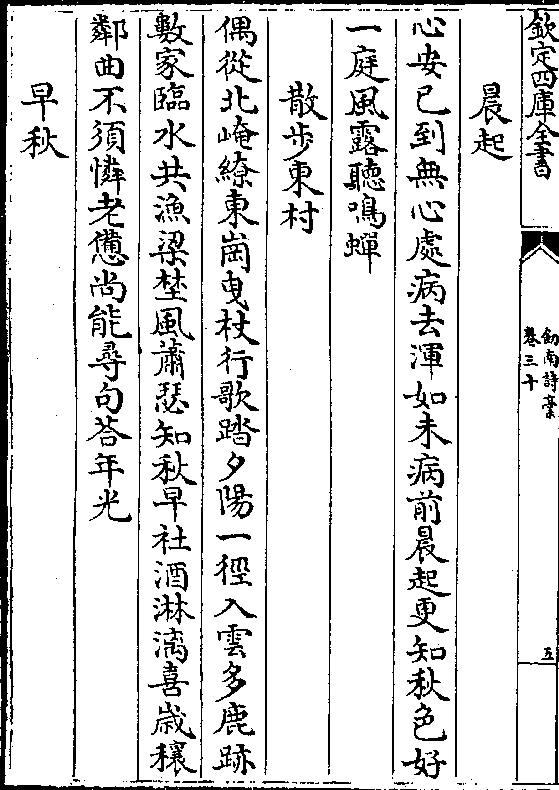 欽定四庫全書
劒南詩稾
卷三十
五
晨起
心安已到無心處病去渾如未病前晨起更知秋色好
一庭風露聽鳴蟬
散步東村
偶從北崦繚東崗曳杖行歌踏夕陽一徑入雲多鹿跡
數家臨水共漁梁埜風蕭瑟知秋早社酒淋漓喜歲穰
鄰曲不須憐老憊尚能尋句答年光
早秋